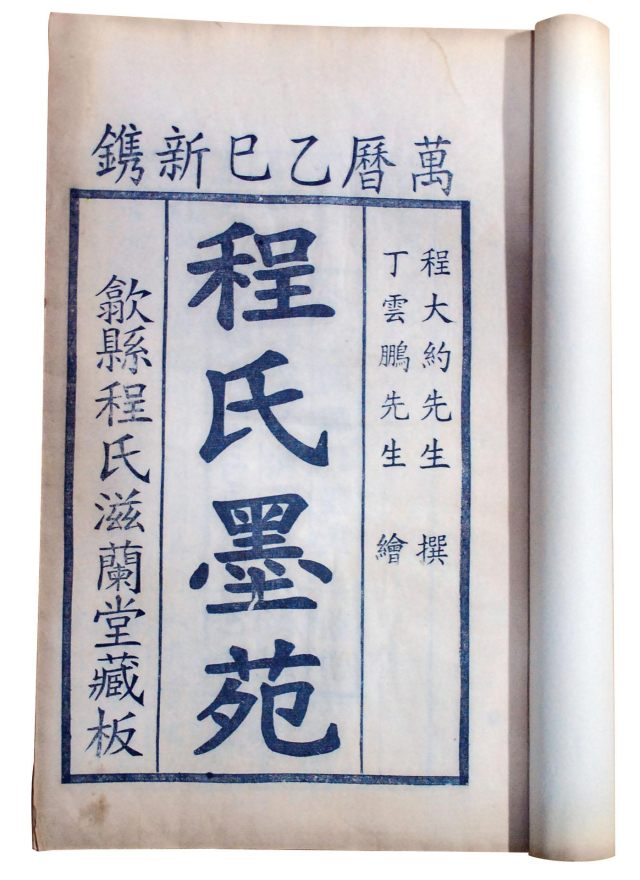 萬曆乙巳新鐫
程大約先生 撰
丁雲鵬先生 繪
程氏墨苑
歙縣程氏滋蘭堂藏板